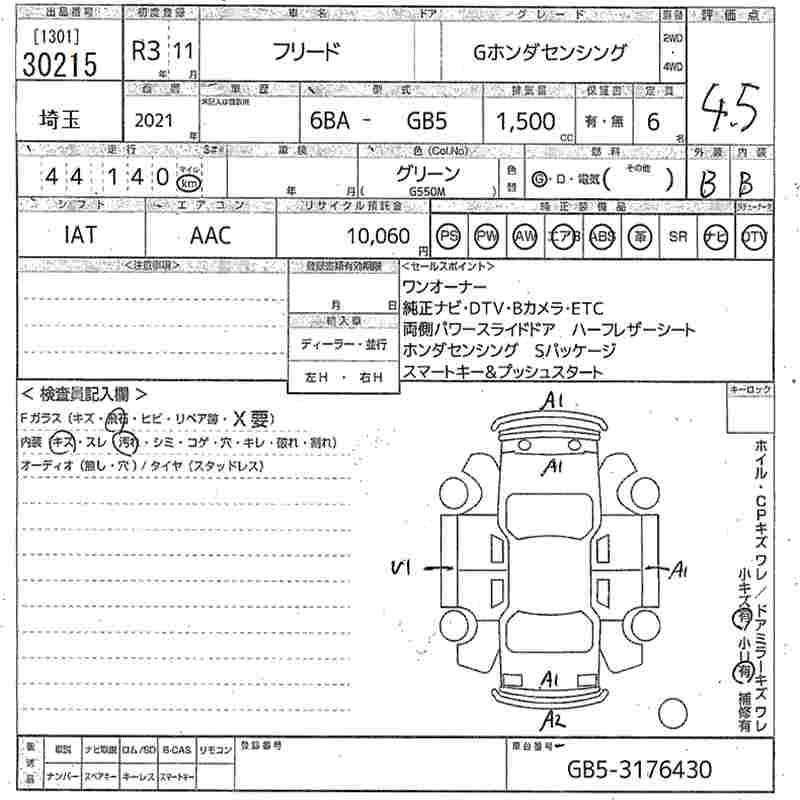 出品番号 初度登録 車名 ドア グレード 評価点
[1301]
30215
R3 11
年 月
フリード
Gホンダセンシング
2WD
・
4WD
4.5
埼玉
2021
年
車歴
型式
6BA - GB5
排気量
1,500
CC
保証書
有・無
定員
6
名
走行
44 140
マイル
km
S#
車検
年 月
色(Col,No)
グリーン
( G550M )
色替
燃料
G・D・電気( その他 )
外装 内装
B B
シフト エアコン リサイクル預託金 純正装備品
IAT AAC 10,060 円
PS PW AW エアB ABS 革 SR ナビ DTV
<注意事項>
登録書類有効期限
月 日
輸入車
ディーラー・並行
左H・右H
<セールスポイント>
ワンオーナー
純正ナビ・DTV・Bカメラ・ETC
両側パワースライドドア ハーフレザーシート
ホンダセンシング Sパッケージ
スマートキー&プッシュスタート
<検査員記入欄>
Fガラス(キズ・飛石・ヒビ・リペア跡・X要)
内装(キズ・スレ・汚れ・シミ・コゲ・穴・キレ・破れ・割れ)
オーディオ(無し・穴)/タイヤ(スタッドレス)
キーロック
A1
A1
U1
A1
A1
A2
ホイル・CPキズワレ/ドアミラーキズワレ
小キズ有/小凹有 補修有
ナビ取説 ロム/SD B-CAS リモコン
ナンバー スペアキー キーレス スマートキー
登録番号
車台番号
GB5-3176430